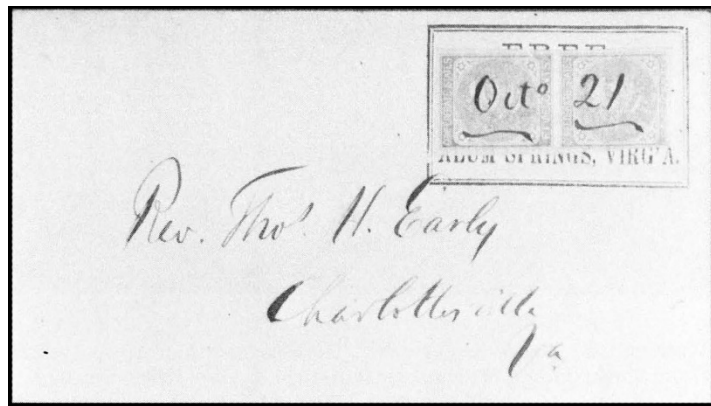 FREE
Octo 21
ALUM SPRINGS, VIRG'A.
Rev. Thos. H. Early
Charlottesville
Va